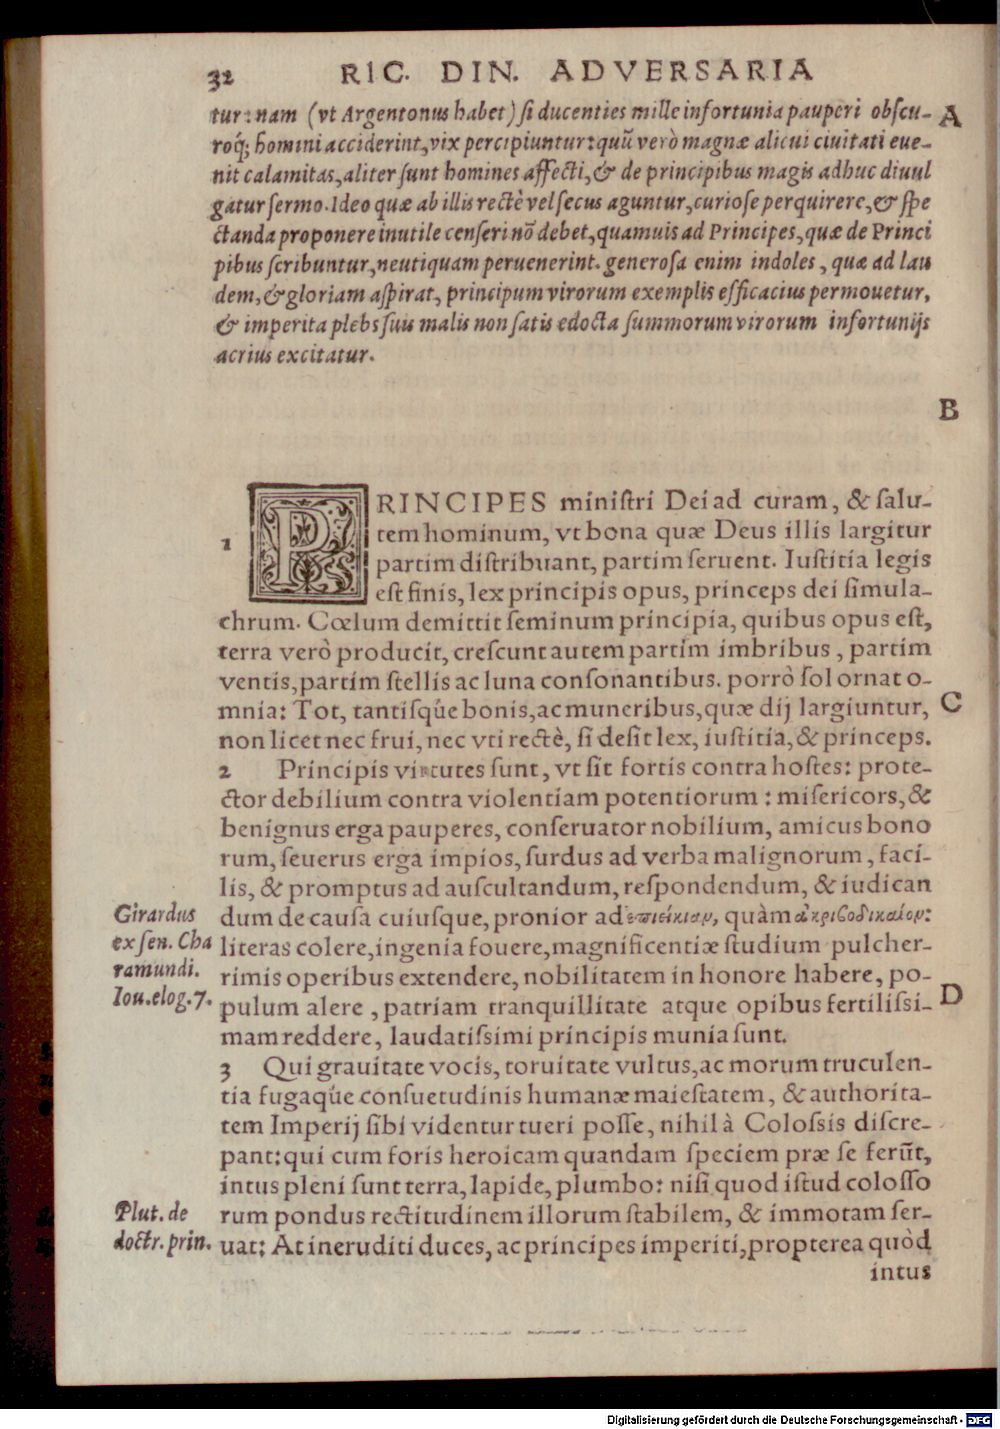 32 RIC. DIN. ADVERSARIA
tur: nam (vt Argentonus habet) ſi ducenties mille infortunia pauperi obſcu-
roq́; homini acciderint, vix percipiuntur: quũ verò magnæ alicui ciuitati eue-
nit calamitas, aliter ſunt homines affecti, & de principibus magis adhuc diuul
gatur ſermo. Ideo quæ ab illis rectè vel ſecus aguntur, curioſe perquirere, & ſpe
ctanda proponere inutile cenſeri nõ debet, quamuis ad Principes, quæ de Princi
pibus ſcribuntur, neutiquam peruenerint. generoſa enim indoles, quæ ad lau
dem, & gloriam aſpirat, principum virorum exemplis efficacius permouetur,
& imperita plebs ſuis malis non ſatis edocta ſummorum virorum infortunijs
acrius excitatur.
A
B
1 PRINCIPES miniſtri Dei ad curam, & ſalu-
tem hominum, vt bona quæ Deus illis largitur
partim diſtribuant, partim ſeruent. Iuſtitia legis
eſt finis, lex principis opus, princeps dei ſimula-
chrum. Cœlum demittit ſeminum principia, quibus opus eſt,
terra verò producit, creſcunt autem partim imbribus, partim
ventis, partim ſtellis ac luna conſonantibus. porrò ſol ornat o-
mnia: Tot, tantiſq́ue bonis, ac muneribus, quæ dij largiuntur,
C
non licet nec frui, nec vti rectè, ſi deſit lex, iuſtitia, & princeps.
2 Principis virtutes ſunt, vt ſit fortis contra hoſtes: prote-
ctor debilium contra violentiam potentiorum: miſericors, &
benignus erga pauperes, conſeruator nobilium, amicus bono
rum, ſeuerus erga impios, ſurdus ad verba malignorum, faci-
lis, & promptus ad auſcultandum, reſpondendum, & iudican
dum de cauſa cuiuſque, pronior ad ἐπιείκιαν, quàm ἀκριβοδικαίον:
literas colere, ingenia fouere, magnificentiæ ſtudium pulcher-
rimis operibus extendere, nobilitatem in honore habere, po-
pulum alere, patriam tranquillitate atque opibus fertiliſsi-
mam reddere, laudatiſsimi principis munia ſunt.
Girardus
ex ſen. Cha
ramundi.
Iou. elog. 7.
D
3 Qui grauitate vocis, toruitate vultus, ac morum truculen-
tia fugaq́ue conſuetudinis humanæ maieſtatem, & authorita-
tem Imperij ſibi videntur tueri poſſe, nihil à Coloſsis diſcre-
pant: qui cum foris heroicam quandam ſpeciem præ ſe ferũt,
intus pleni ſunt terra, lapide, plumbo: niſi quod iſtud coloſſo
rum pondus rectitudinem illorum ſtabilem, & immotam ſer-
uat: At ineruditi duces, ac principes imperiti, propterea quòd
Plut. de
doctr. prin.
intus
Digitalisierung gefördert durch die Deutsche Forschungsgemeinschaft - DFG